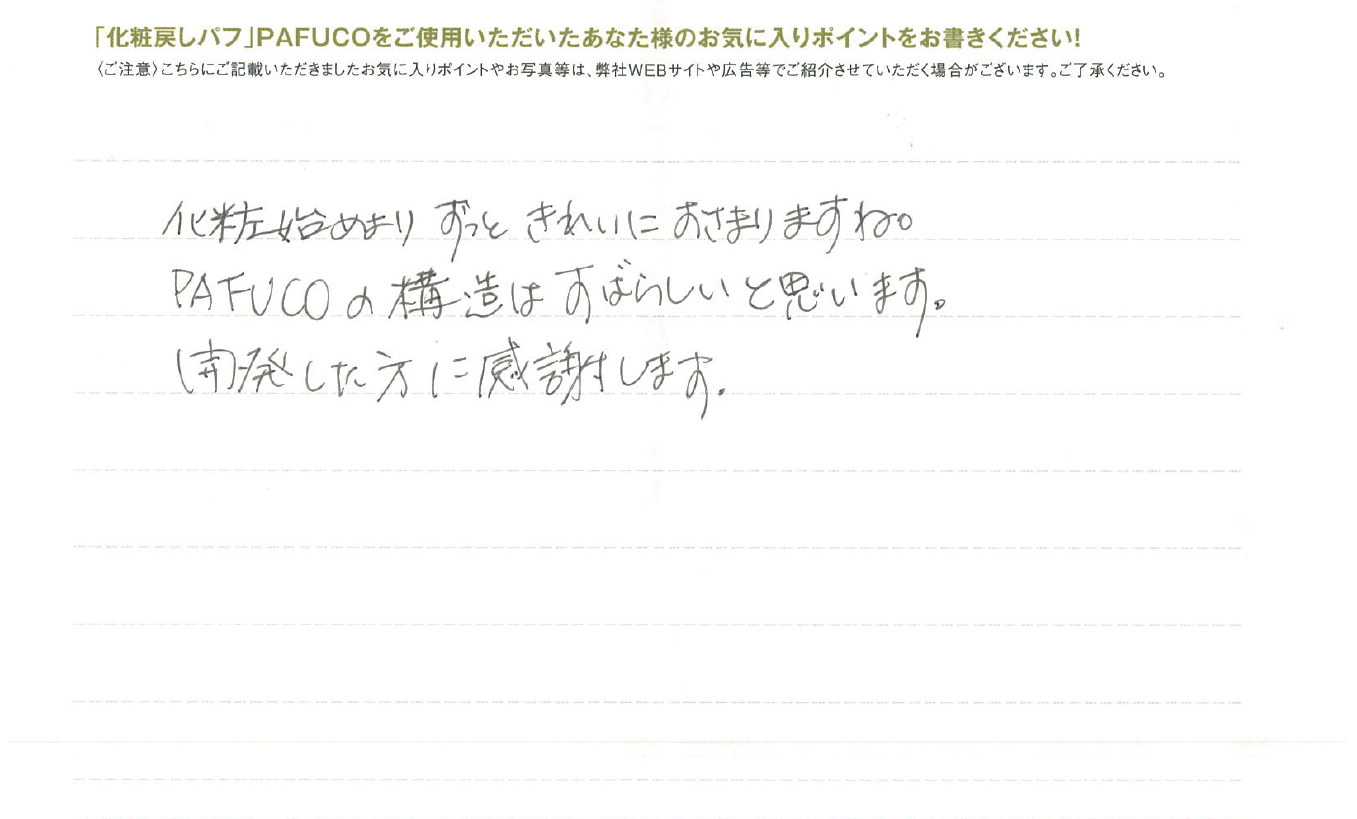 「化粧戻しパフ」PAFUCOをご使用いただいたあなた様のお気に入りポイントをお書きください!
〈ご注意〉こちらにご記載いただきましたお気に入りポイントやお写真等は、弊社WEBサイトや広告等でご紹介させていただく場合がございます。ご了承ください。
化粧始めより ずっと きれいに おさまりますね。
PAFUCOの構造は すばらしいと思います。
開発した方に感謝します。